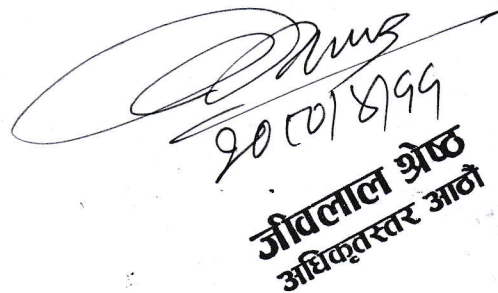 २०८०|४|११
जीवलाल श्रेष्ठ
अधिकृतस्तर आठौं